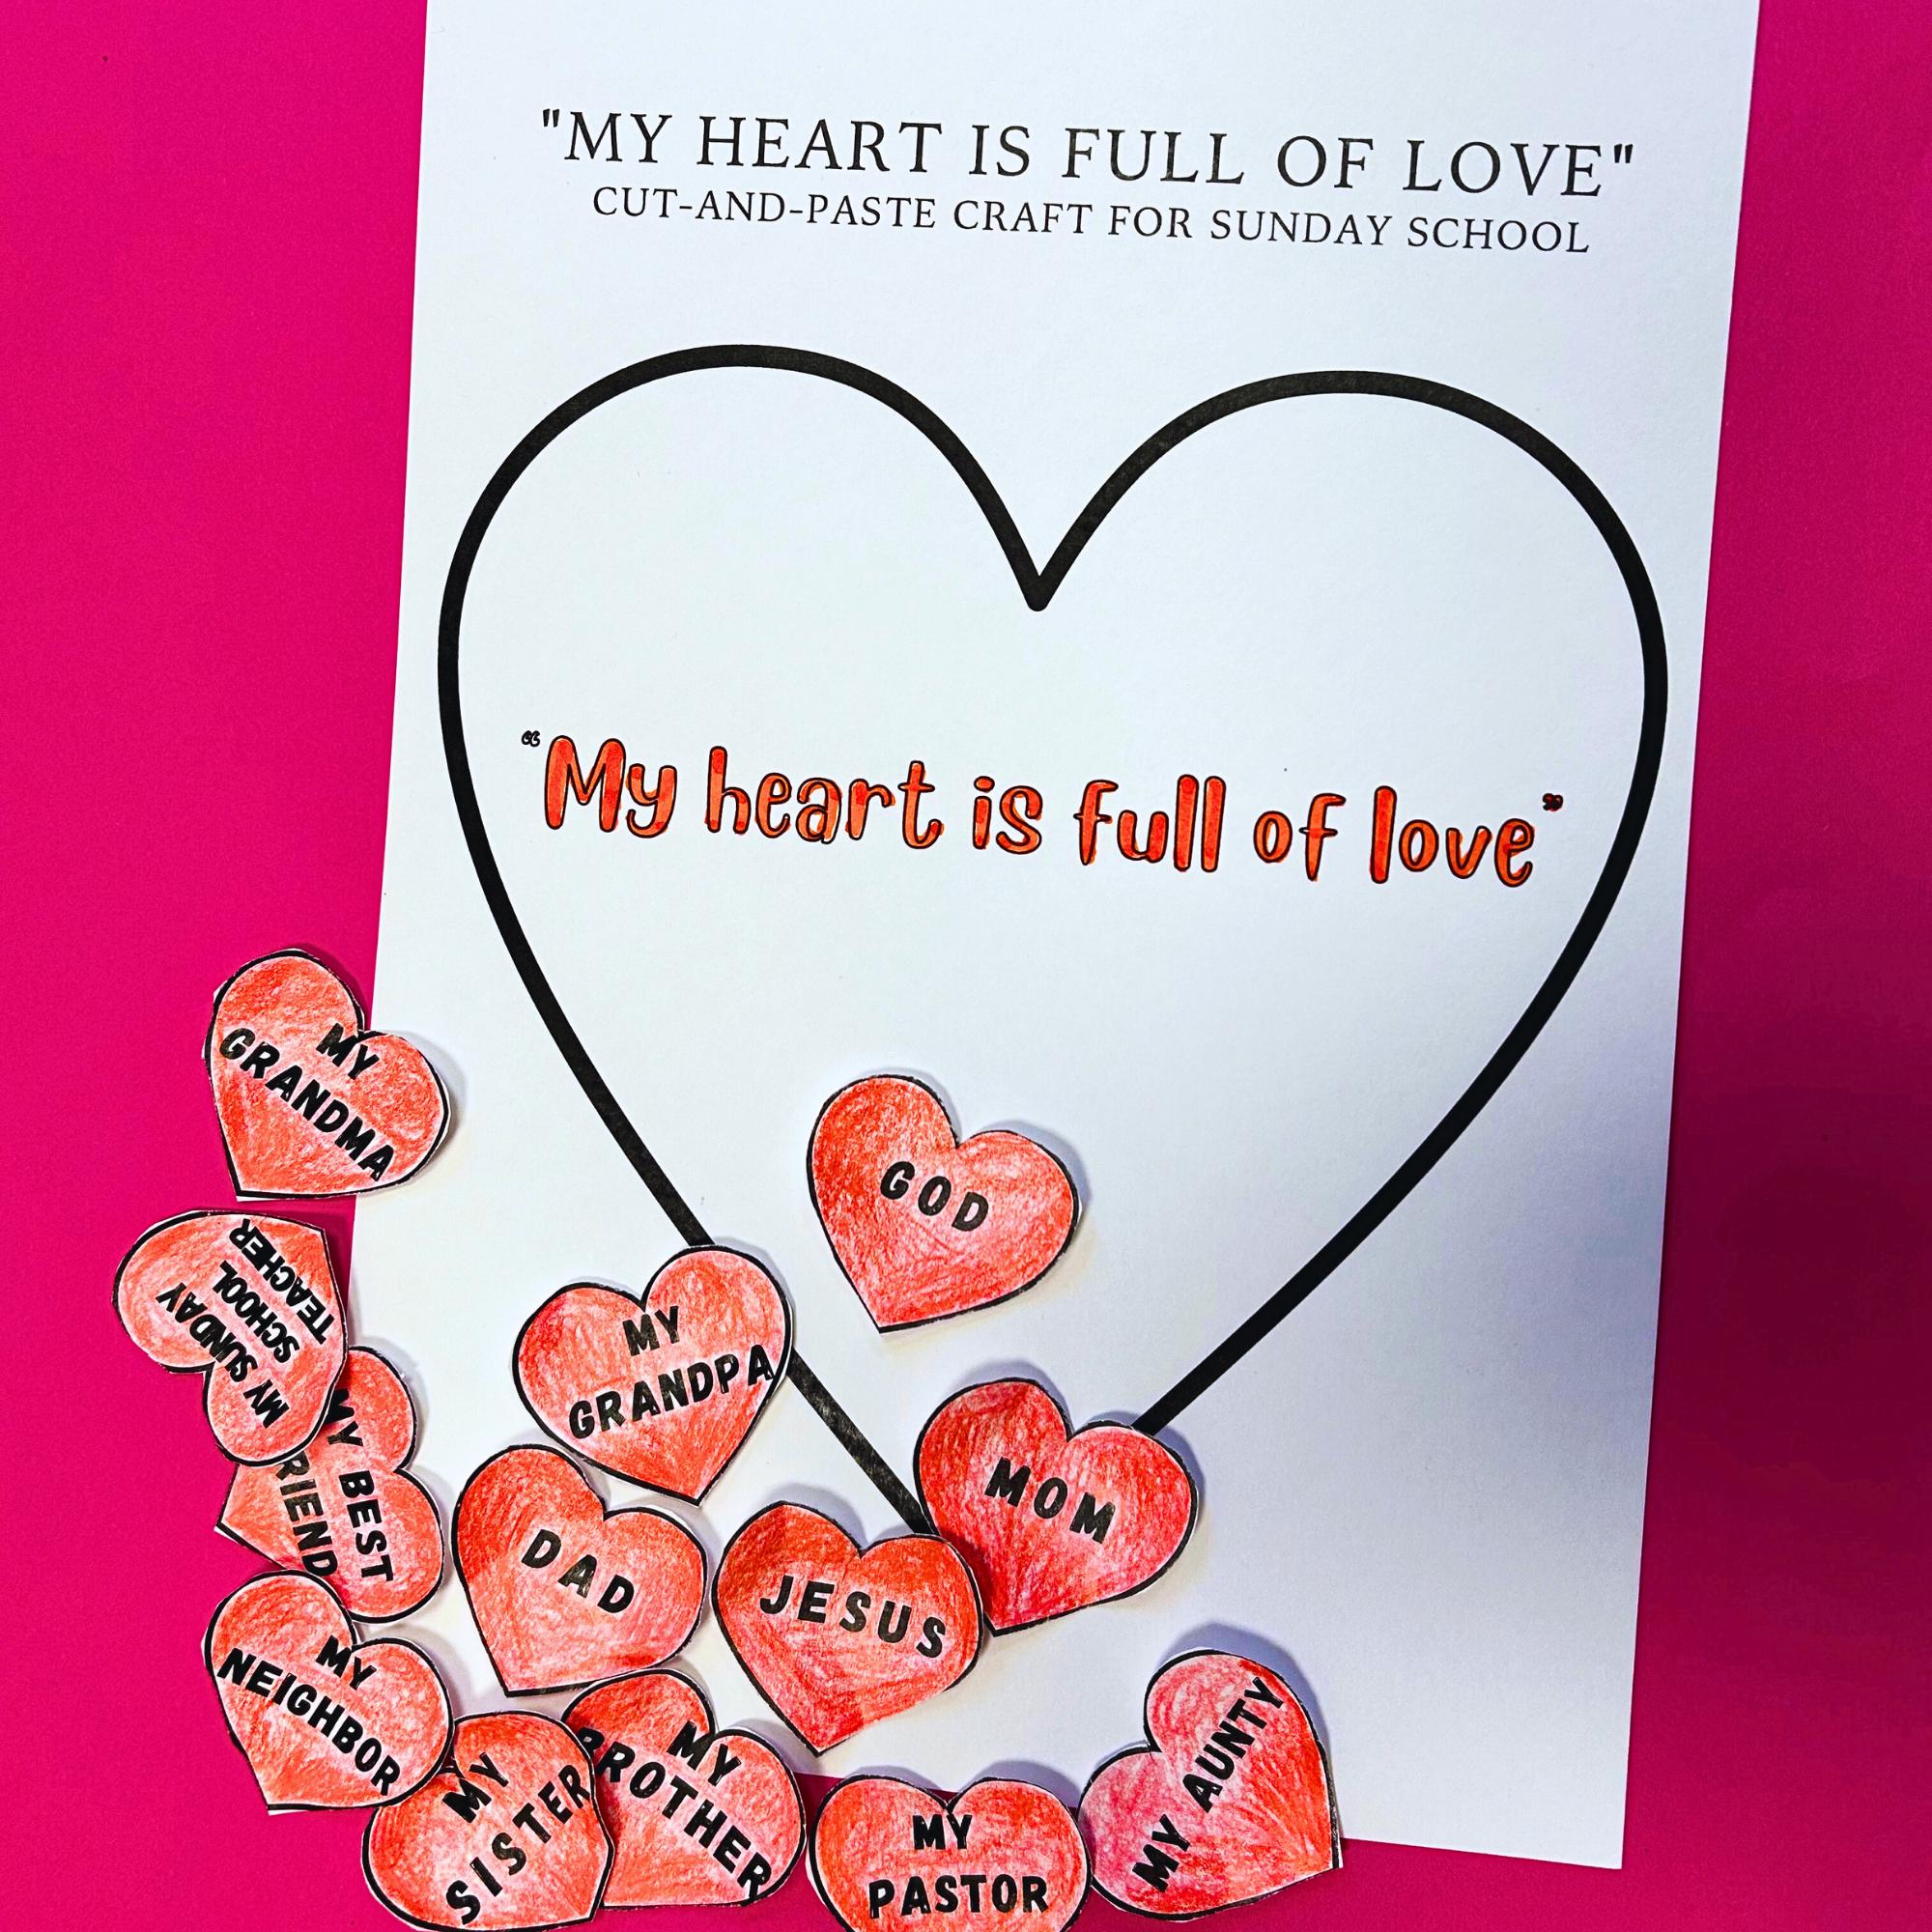 "MY HEART IS FULL OF LOVE"
CUT-AND-PASTE CRAFT FOR SUNDAY SCHOOL
“My heart is full of love”
MY
GRANDMA
GOD
MY SUNDAY
SCHOOL
TEACHER
MY
GRANDPA
MY BEST
RIEND
MOM
DAD
JESUS
MY
NEIGHBOR
MY
BROTHER
MY
SISTER
MY AUNTY
MY
PASTOR